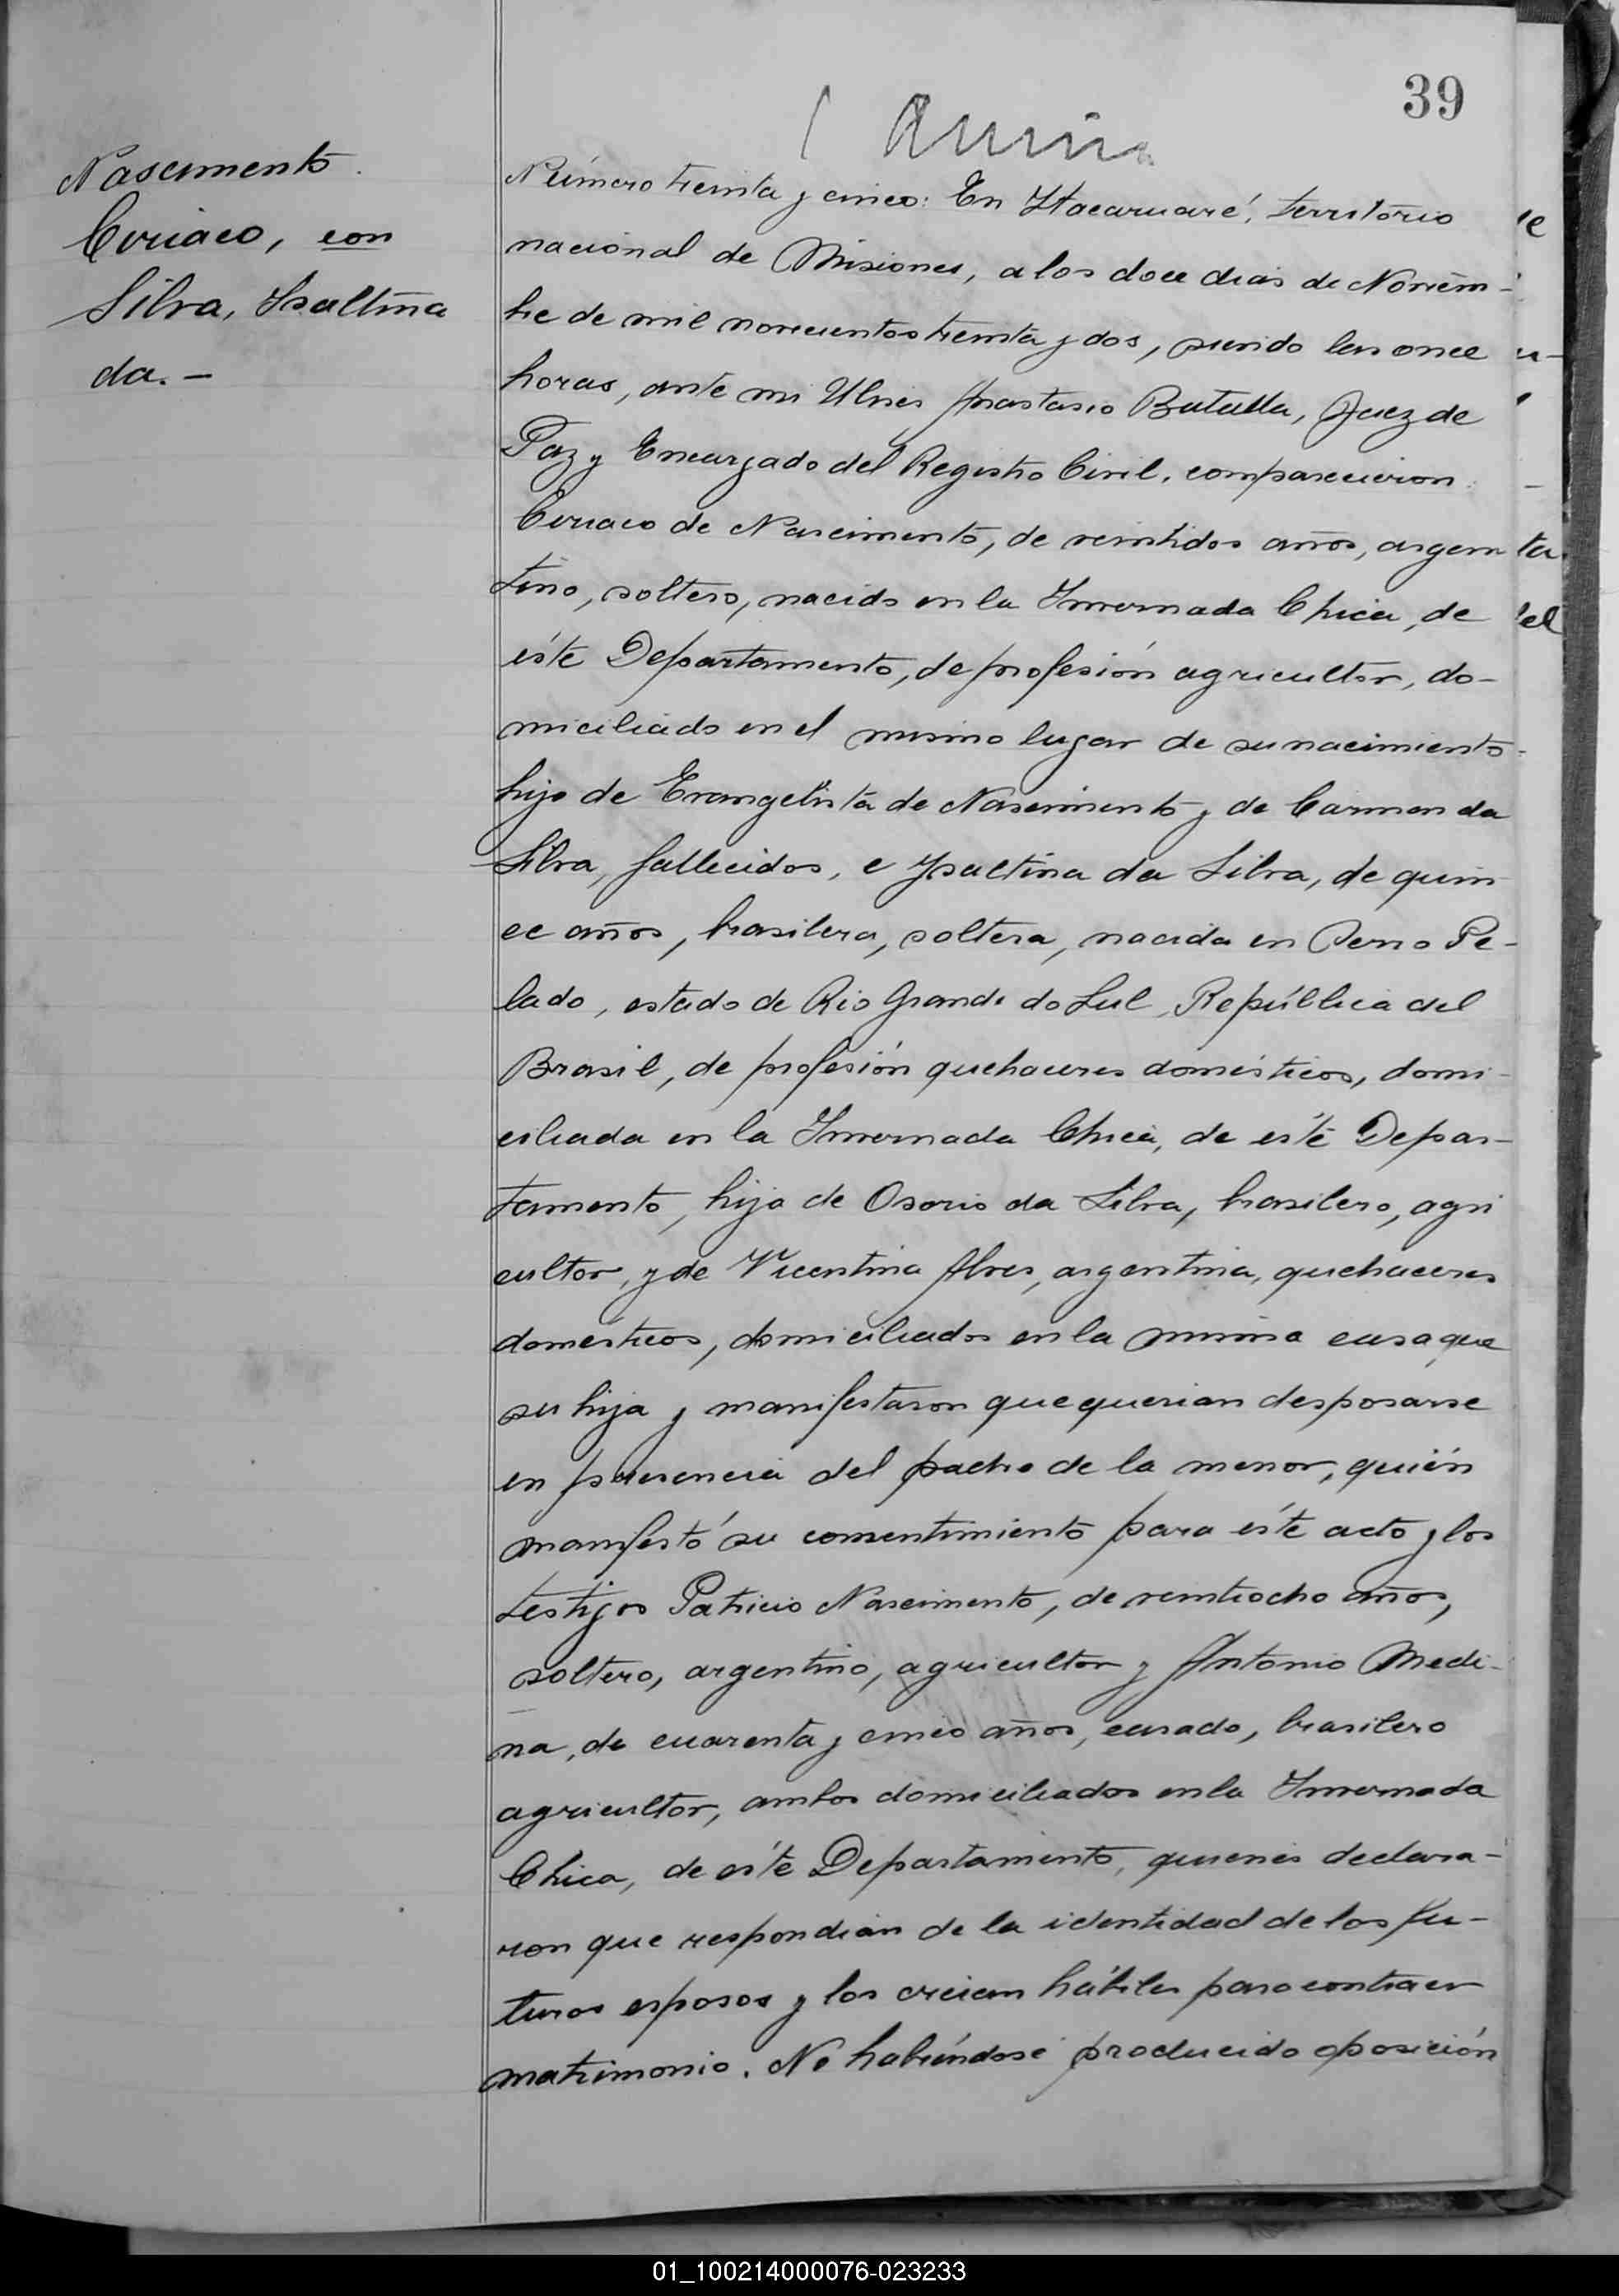 39
Nascimento
Ciriaco, con
Silva, Isaltina
da.-
Número treinta y cinco: En Itacaruaré, territorio
nacional de Misiones, a los doce dias de Noviem-
bre de mil novecientos treinta y dos, siendo las once
horas, ante mi Ulises Anastasio Batalla, Juez de
Paz y Encargado del Registro Civil, comparecieron
Ciriaco de Nascimento, de veintidos años, argen
tino, soltero, nacido en la Invernada Chica, de
éste Departamento, de profesión agricultor, do-
miciliado en el mismo lugar de su nacimiento
hijo de Evangelista de Nascimento y de Carmen da
Silva, fallecidos, e Ysaltina da Silva, de quin
ce años, brasilera, soltera, nacida en Serro Pe-
lado, estado de Rio Grande do Sul, República del
Brasil, de profesión quehaceres domésticos, domi-
ciliada en la Invernada Chica, de éste Depar-
tamento, hija de Osorio da Silva, brasilero, agri
cultor, y de Vicentina Alves, argentina, quehaceres
domésticos, domiciliados en la misma casa que
su hija y manifestaron que querian desposarse
en presencia del padre de la menor, quién
manifestó su consentimiento para éste acto y los
testigos Patricio Nascimento, de veintiocho años,
soltero, argentino, agricultor y Antonio Medi-
na, de cuarenta y cinco años, casado, brasilero
agricultor, ambos domiciliados en la Invernada
Chica, de éste Departamento, quienes declara-
ron que respondian de la identidad de los fu-
turos esposos y los creian hábiles para contraer
matrimonio. No habiéndose producido oposición
01_100214000076-023233